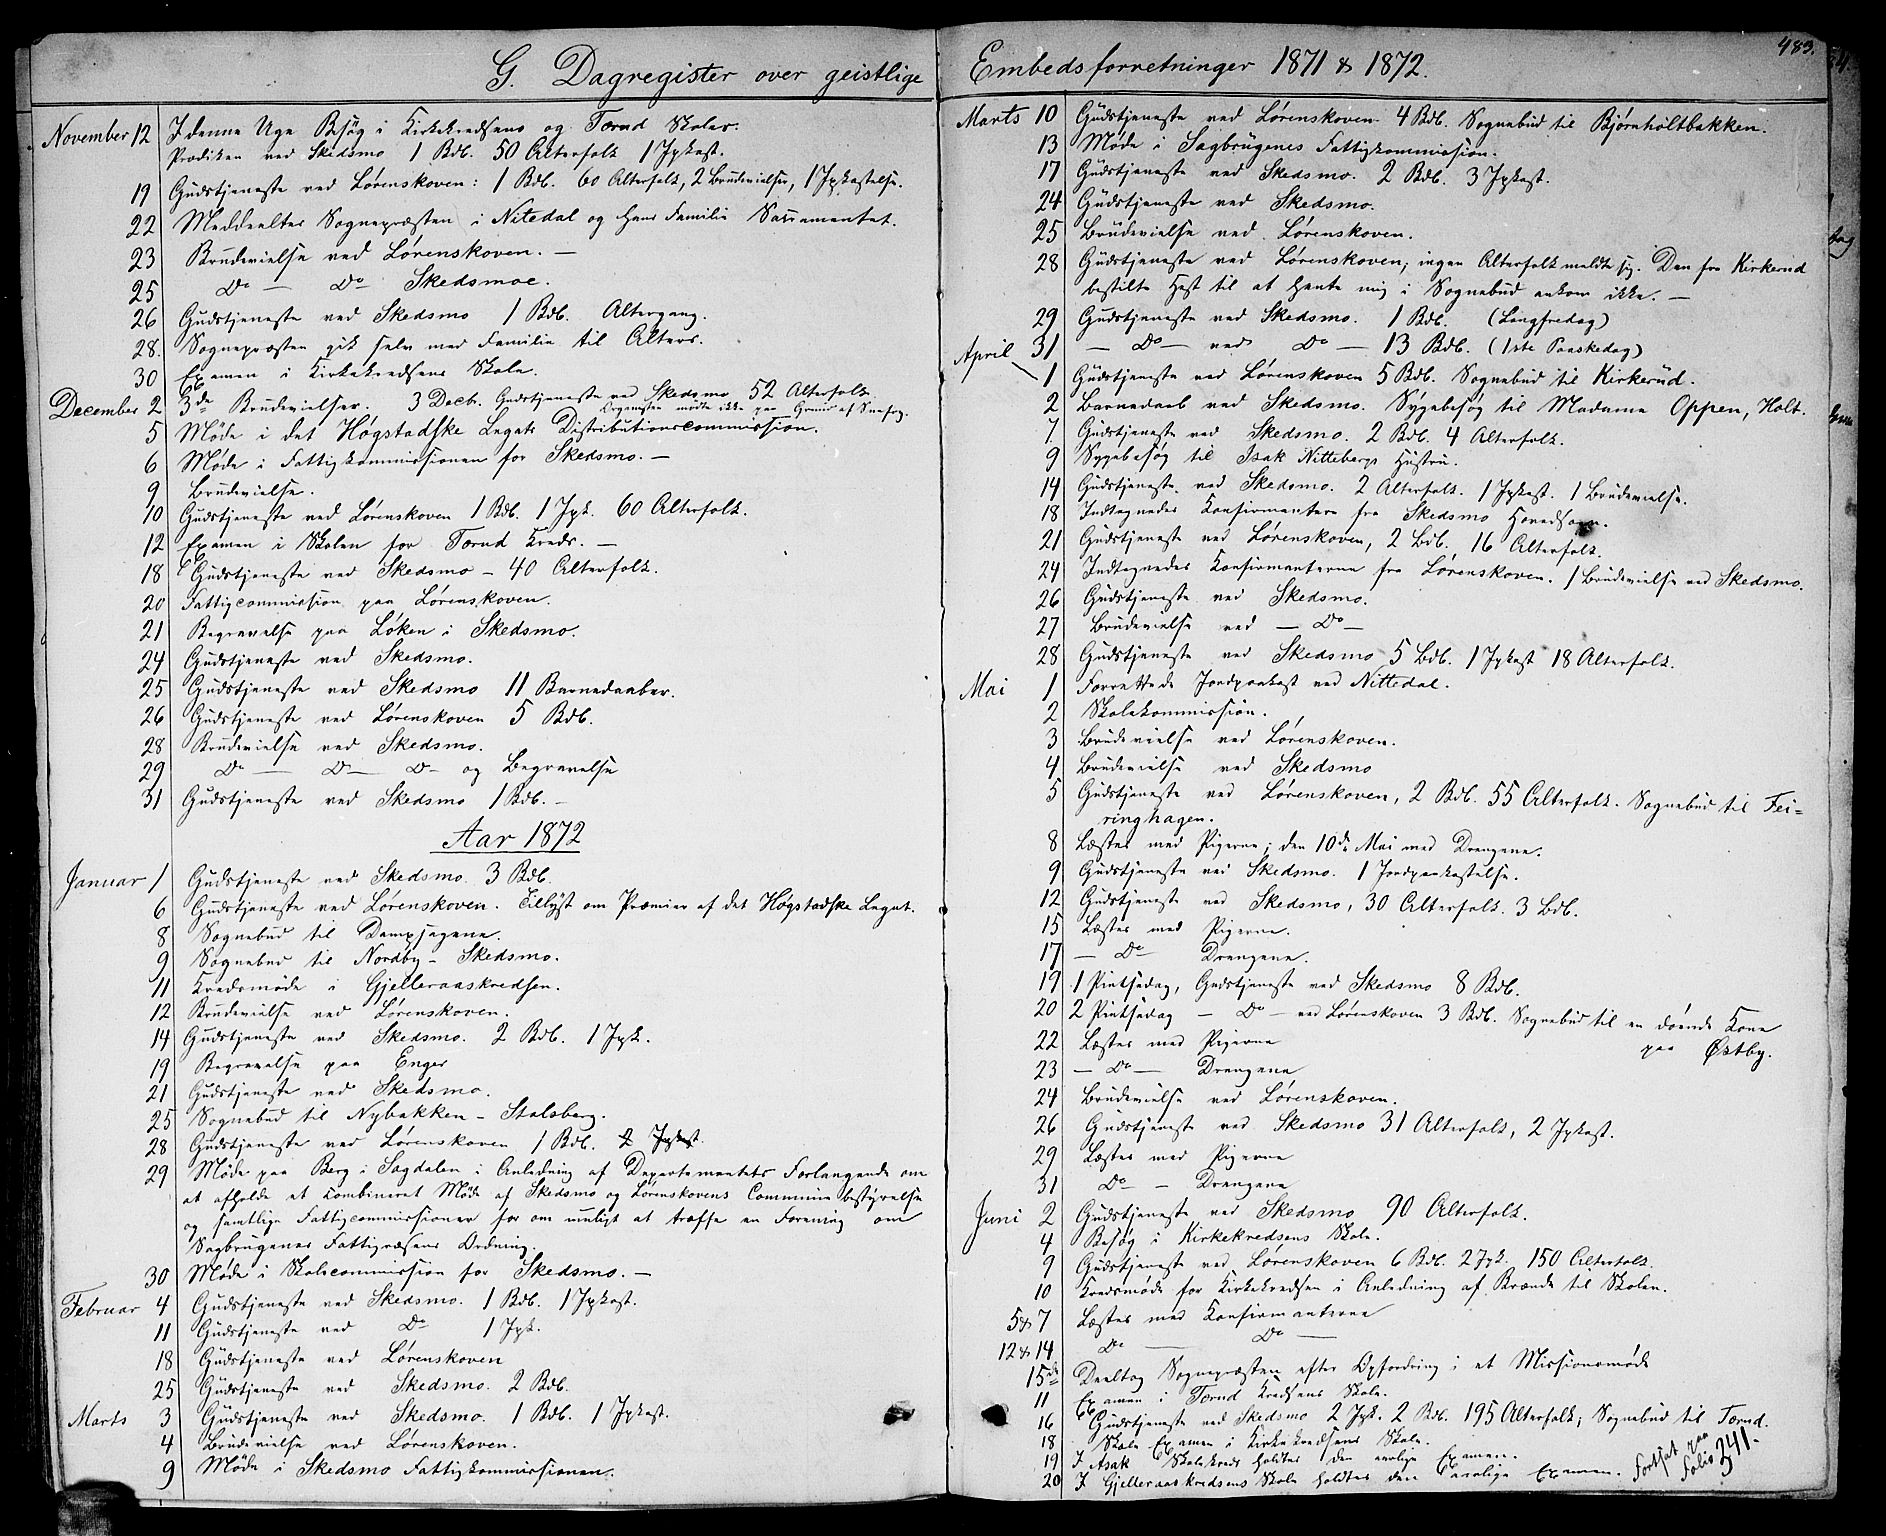 G. Dagregister over geistlige
November 12 I denne Uge Besøg i Kirkekredsens og Torud Skoler.
Prædiken ved Skedsmo 1 Bdb. 50 Alterfolk 1 Jpkast.
19 Gudstjeneste ved Lørenskoven: 1 Bdb. 60 Alterfolk, 2 Brudevielser, 1 Jpkastelse.
22 Meddeeltes Sognepræsten i Nitedal og hans Familie Sacramentet.
23 Brudevielse ved Lørenskoven. —
25 Do — Do Skedsmoe.
26 Gudstjeneste ved Skedsmo 1 Bdb. Altergang.
28. Sognepræsten gik selv med Familie til Alters.
30 Examen i Kirkekredsens Skole.
December 2 3de Brudevielser. 3 Decb. Gudstjeneste ved Skedsmo 52 Alterfolk
Organisten mødte ikke paa Grund af Snefog.
5 Møde i det Høgstadske Legats Distributionscommission.
6 Møde i Fattigkommissionen for Skedsmo. —
9 Brudevielse.
10 Gudstjeneste ved Lørenskoven 1 Bdb. 1 Jpk. 60 Alterfolk.
12 Examen i Skolen for Torud Kreds. —
18 Gudstjeneste ved Skedsmo – 40 Alterfolk.
20 Fattigcommission paa Lørenskoven.
21 Begravelse paa Løken i Skedsmo.
24 Gudstjeneste ved Skedsmo.
25 Gudstjeneste ved Skedsmo 11 Barnedaaber.
26 Gudstjeneste ved Lørenskoven 5 Bdb.
28 Brudevielse ved Skedsmo.
29 Do — Do — Do og Begravelse
31 Gudstjeneste ved Skedsmo 1 Bdb. –
Aar 1872
Januar 1 Gudstjeneste ved Skedsmo 3 Bdb.
6 Gudstjeneste ved Lørenskoven. Tillyst om Præmier af det Høgstadske Legat.
8 Sognebud til Dampsagene.
9 Sognebud til Nordby – Skedsmo.
11 Kredsmøde i Gjelleraaskredsen.
12 Brudevielse ved Lørenskoven.
14 Gudstjeneste ved Skedsmo. 2 Bdb. 1 Jpk.
19 Begravelse paa Enger
21 Gudstjeneste ved Skedsmo.
25 Sognebud til Nybakken – Stalsberg.
28 Gudstjeneste ved Lørenskoven 1 Bdb. 2 Jpkast.
29 Møde paa Berg i Sagdalen i Anledning af Departementets Forlangende om
at afholde et combineret Møde af Skedsmo og Lørenskovens Communebestyrelse
og samtlige Fattigcommissioner for om muligt at træffe en Forening om
Sagbrugenes Fattigvæsens Ordning.
30 Møde i Skolecommission for Skedsmo. —
Februar 4 Gudstjeneste ved Skedsmo. 1 Bdb. 1 Jpkast.
11 Gudstjeneste ved Do 1 Jpk.
18 Gudstjeneste ved Lørenskoven
25 Gudstjeneste ved Skedsmo. 2 Bdb.
Marts 3 Gudstjeneste ved Skedsmo. 1 Bdb. 1 Jpkast.
4 Brudevielse ved Lørenskoven.
9 Møde i Skedsmo Fattigkommissionen.
Embedsforretninger 1871 & 1872.
483.
Marts 10 Gudstjeneste ved Lørenskoven 4 Bdb. Sognebud til Bjørnholtbakken.
13 Møde i Sagbrugenes Fattigkommission.
17 Gudstjeneste ved Skedsmo. 2 Bdb. 3 Jpkast.
24 Gudstjeneste ved Skedsmo.
25 Brudevielse ved Lørenskoven.
28 Gudstjeneste ved Lørenskoven; ingen Alterfolk meldte sig. Den fra Kirkerud
bestilte Hest til at hente mig i Sognebud ankom ikke. —
29 Gudstjeneste ved Skedsmo. 1 Bdb. (Langfredag)
31 — Do — ved Do — 13 Bdb. (1ste Paaskedag)
April 1 Gudstjeneste ved Lørenskoven 5 Bdb. Sognebud til Kirkerud.
2 Barnedaab ved Skedsmo. Sygebesøg til Madame Oppen, Holt.
7 Gudstjeneste ved Skedsmo. 2 Bdb. 4 Alterfolk.
9 Sygebesøg til Isak Nittebergs Hustru.
14 Gudstjeneste ved Skedsmo. 2 Alterfolk. 1 Jpkast. 1 Brudevielse.
18 Indtegnedes Konfirmantere fra Skedsmo Hovedsogn.
21 Gudstjeneste ved Lørenskoven, 2 Bdb. 16 Alterfolk.
24 Indtegnedes Konfirmanterne fra Lørenskoven. 1 Brudevielse ved Skedsmo.
26 Gudstjeneste ved Skedsmo.
27 Brudevielse ved — Do —
28 Gudstjeneste ved Skedsmo 5 Bdb. 1 Jpkast 18 Alterfolk.
Mai 1 Forrettede Jordpaakast ved Nittedal.
2 Skolekommission.
3 Brudevielse ved Lørenskoven.
4 Brudevielse ved Skedsmo
5 Gudstjeneste ved Lørenskoven, 2 Bdb. 55 Alterfolk. Sognebud til Fei=
ringhagen.
8 Læstes med Pigerne; den 10de Mai med Drengene.
9 Gudstjeneste ved Skedsmo. 1 Jordpaakastelse.
12 Gudstjeneste ved Skedsmo, 30 Alterfolk. 3 Bdb.
15 Læstes med Pigerne.
17 — Do — Drengene.
19 1 Pintsedag, Gudstjeneste ved Skedsmo 8 Bdb.
20 2 Pintsedag — Do — ved Lørenskoven 3 Bdb. Sognebud til en døende Kone
paa Østby.
22 Læstes med Pigerne
23 — Do — Drengene
24 Brudevielse ved Lørenskoven.
26 Gudstjeneste ved Skedsmo 31 Alterfolk, 2 Jpkast.
29 Læstes med Pigerne
31 Do — Drengene
Juni 2 Gudstjeneste ved Skedsmo 90 Alterfolk.
4 Besøg i Kirkekredsens Skole.
9 Gudstjeneste ved Lørenskoven 6 Bdb. 2 Jpk. 150 Alterfolk.
10 Kredsmøde for Kirkekredsen i Anledning af Brænde til Skolen.
5 & 7 Læstes med Konfirmanterne
12 & 14 Do — Do —
15de Deeltog Sognepræsten efter Opfordring i et Missionsmøde
11 Examen i Torud Kredsens Skole.
16 Gudstjeneste ved Skedsmo 2 Jpk. 2 Bdb. 195 Alterfolk; Sognebud til Torud.
18 Skole Examen i Kirkekredsens Skole.
19 I Asak Skolekreds holdtes den aarlige Examen.
20 I Gjelleraaskredsens Skole holdtes den aarlige Examen. Fortsat paa
Folio 341.